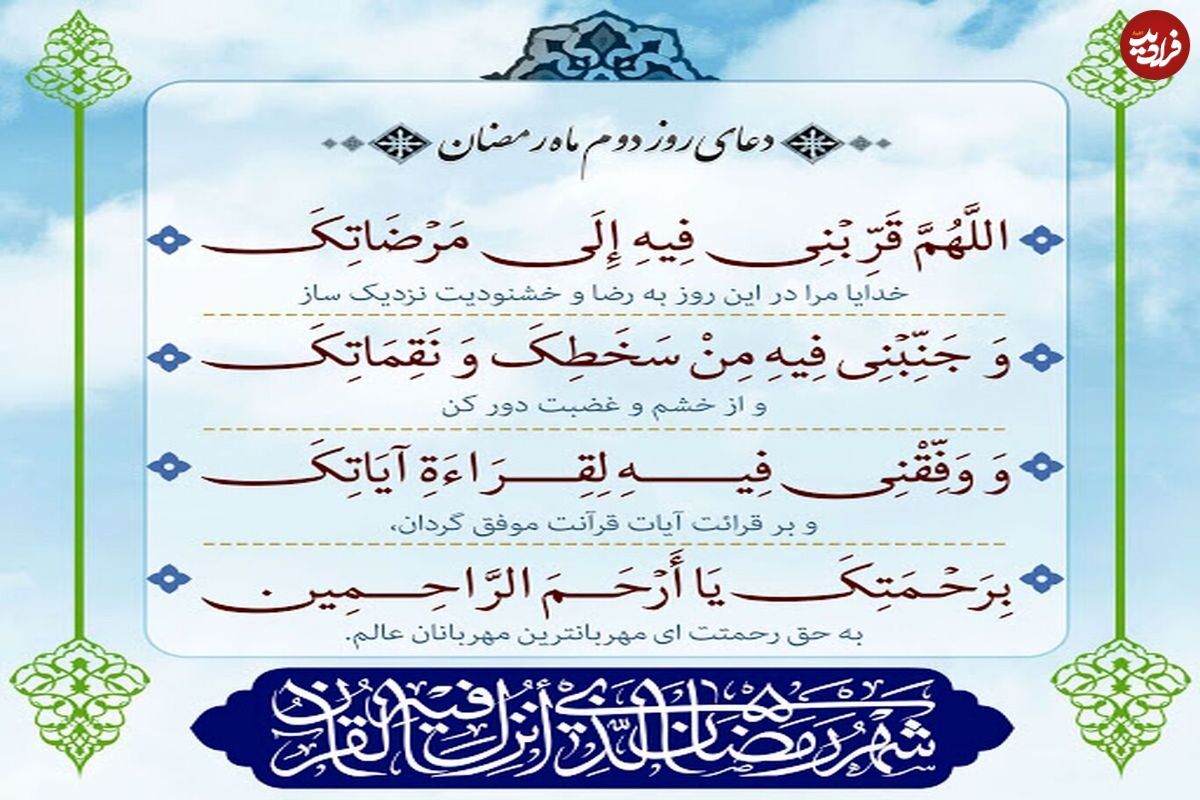 فرادید
دعای روز دوم ماه رمضان
اللَّهُمَّ قَرِّبْنِی فِیهِ إِلَی مَرْضَاتِکَ
خدایا مرا در این روز به رضا و خشنودیت نزدیک ساز
وَ جَنِّبْنِی فِیهِ مِنْ سَخَطِکَ وَ نَقِمَاتِکَ
و از خشم و غضبت دور کن
وَ وَفِّقْنِی فِیهِ لِقِرَاءَةِ آیَاتِکَ
و بر قرائت آیات قرآنت موفق گردان،
بِرَحْمَتِکَ یَا أَرْحَمَ الرَّاحِمِین
به حق رحمتت ای مهربانترین مهربانان عالم.
شَهْرُ رَمَضَانَ الَّذِي أُنزِلَ فِيهِ الْقُرْآنُ